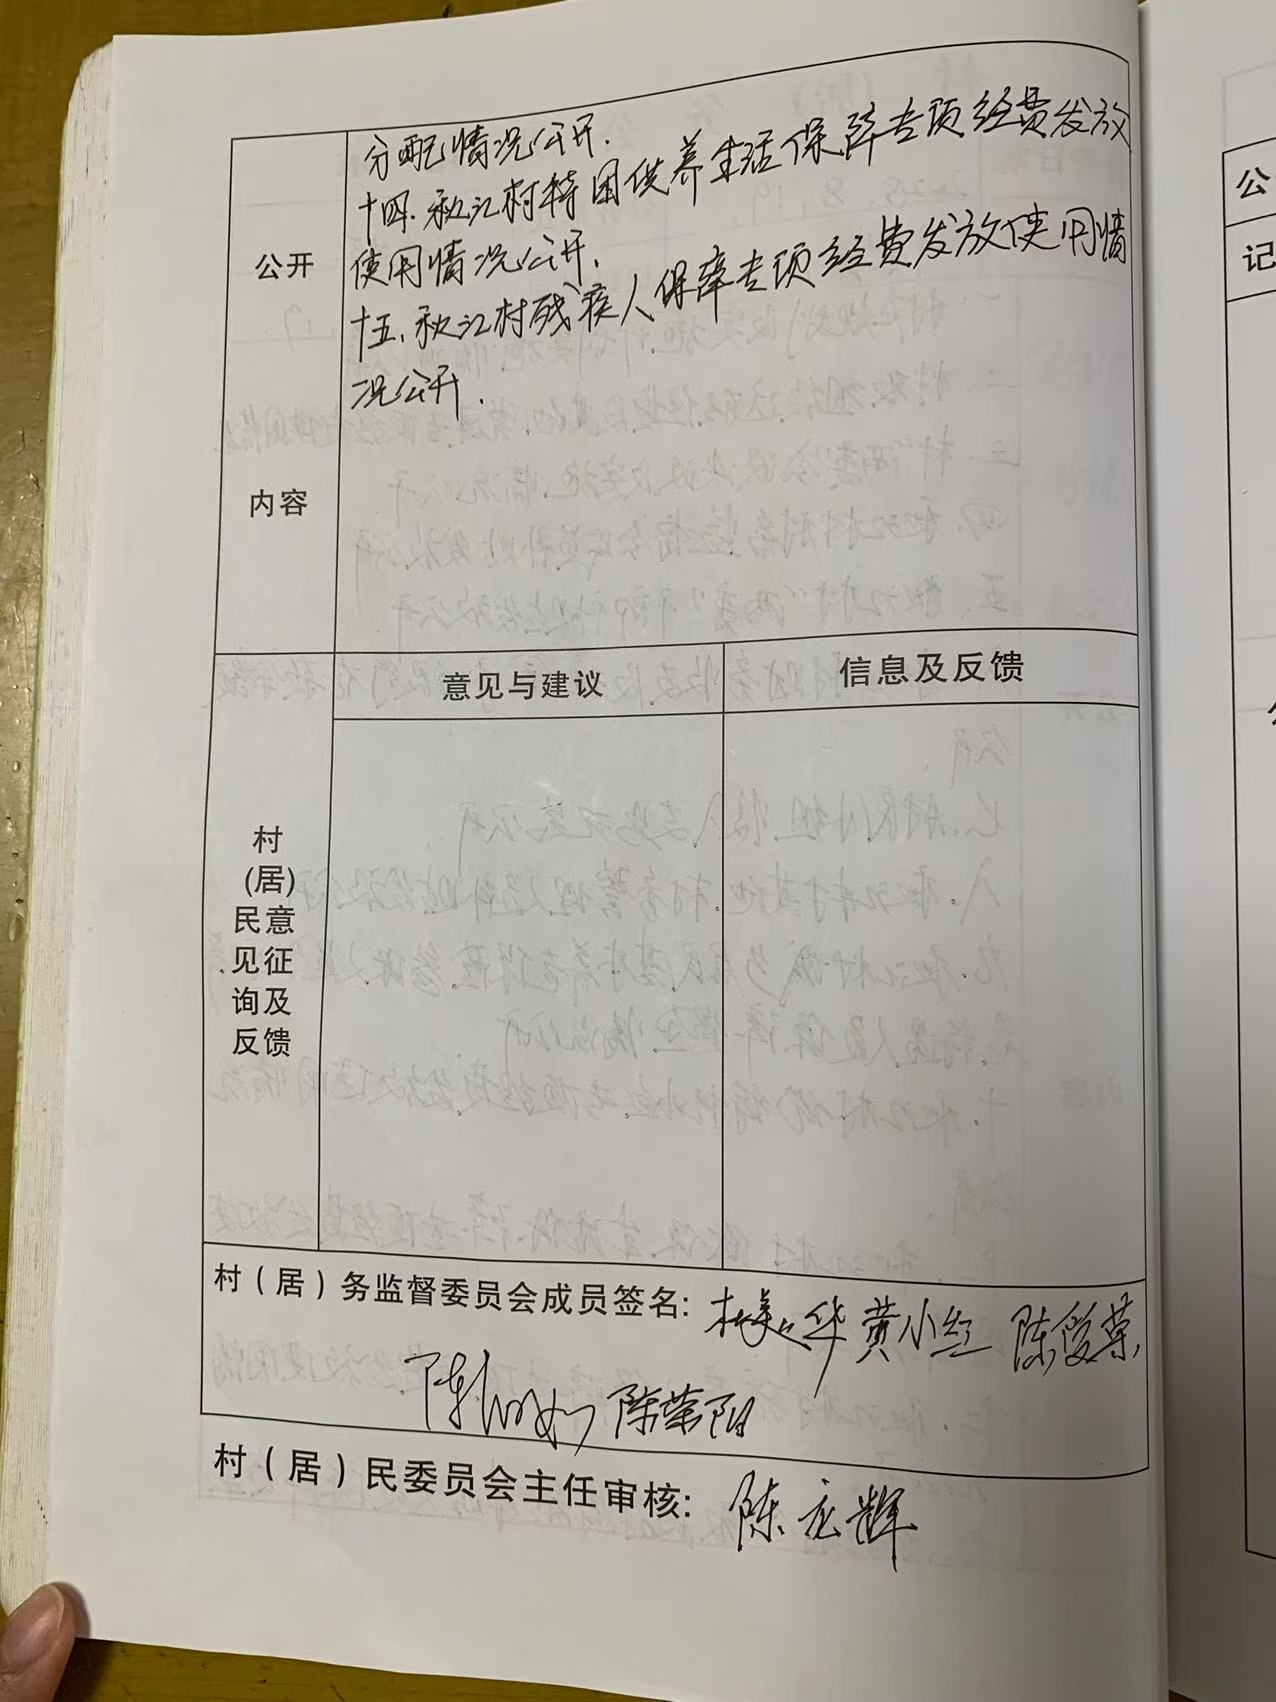 分配情况公开.
十四.秋江村特困供养生活保障专项经费发放
使用情况公开.
十五.秋江村残疾人保障专项经费发放使用情
况公开.
公开
内容
意见与建议
信息及反馈
村
(居)
民意
见征
询及
反馈
村（居）务监督委员会成员签名: 林美华 黄小红 陈爱荣
陈荣阳
村（居）民委员会主任审核: 陈宏辉
公
记